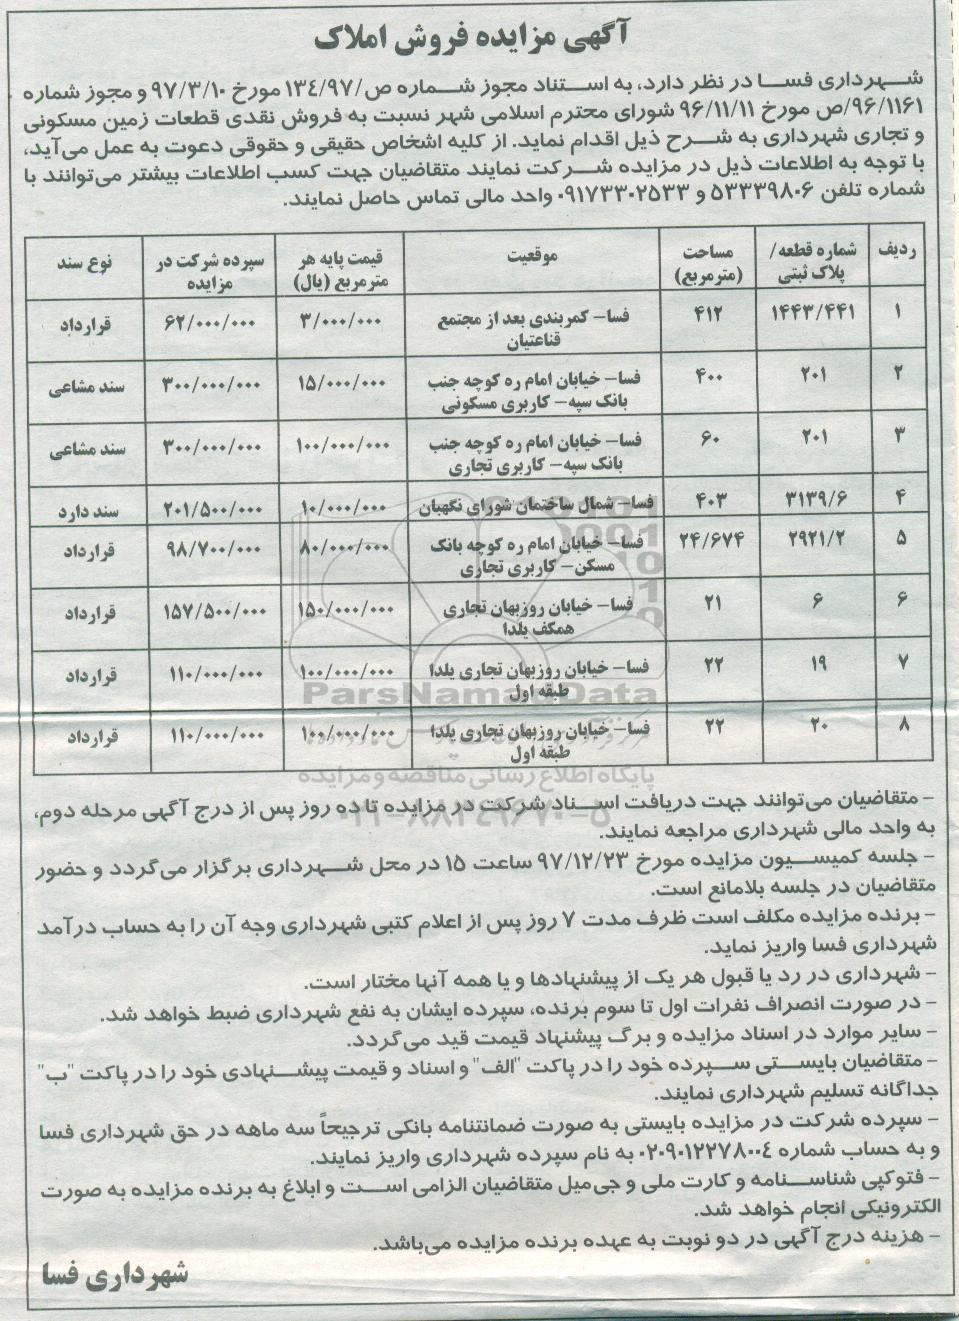 آگهی مزایده فروش املاک
شهرداری فسا در نظر دارد، به استناد مجوز شماره ص/۱۳٤/۹۷ مورخ ۹۷/۳/۱۰ و مجوز شماره
۹۶/۱۱۶۱/ص مورخ ۹۶/۱۱/۱۱ شورای محترم اسلامی شهر نسبت به فروش نقدی قطعات زمین مسکونی
و تجاری شهرداری به شرح ذیل اقدام نماید. از کلیه اشخاص حقیقی و حقوقی دعوت به عمل می‌آید،
با توجه به اطلاعات ذیل در مزایده شرکت نمایند متقاضیان جهت کسب اطلاعات بیشتر می‌توانند با
شماره تلفن ۵۳۳۳۹۸۰۶ و ۰۹۱۷۳۳۰۲۵۳۳ واحد مالی تماس حاصل نمایند.
ردیف شماره قطعه/ پلاک ثبتی مساحت (مترمربع) موقعیت قیمت پایه هر مترمربع (یال) سپرده شرکت در مزایده نوع سند
۱ ۱۴۴۳/۴۴۱ ۴۱۲ فسا– کمربندی بعد از مجتمع قناعتیان ۳/۰۰۰/۰۰۰ ۶۲/۰۰۰/۰۰۰ قرارداد
۲ ۲۰۱ ۴۰۰ فسا– خیابان امام ره کوچه جنب بانک سپه– کاربری مسکونی ۱۵/۰۰۰/۰۰۰ ۳۰۰/۰۰۰/۰۰۰ سند مشاعی
۳ ۲۰۱ ۶۰ فسا– خیابان امام ره کوچه جنب بانک سپه– کاربری تجاری ۱۰۰/۰۰۰/۰۰۰ ۳۰۰/۰۰۰/۰۰۰ سند مشاعی
۴ ۳۱۳۹/۶ ۴۰۳ فسا– شمال ساختمان شورای نگهبان ۱۰/۰۰۰/۰۰۰ ۲۰۱/۵۰۰/۰۰۰ سند دارد
۵ ۲۹۲۱/۲ ۲۴/۶۷۴ فسا– خیابان امام ره کوچه بانک مسکن– کاربری تجاری ۸۰/۰۰۰/۰۰۰ ۹۸/۷۰۰/۰۰۰ قرارداد
۶ ۶ ۲۱ فسا– خیابان روزبهان تجاری همکف یلدا ۱۵۰/۰۰۰/۰۰۰ ۱۵۷/۵۰۰/۰۰۰ قرارداد
۷ ۱۹ ۲۲ فسا– خیابان روزبهان تجاری یلدا طبقه اول ۱۰۰/۰۰۰/۰۰۰ ۱۱۰/۰۰۰/۰۰۰ قرارداد
۸ ۲۰ ۲۲ فسا– خیابان روزبهان تجاری یلدا طبقه اول ۱۰۰/۰۰۰/۰۰۰ ۱۱۰/۰۰۰/۰۰۰ قرارداد
ParsNamadData
پایگاه اطلاع رسانی مناقصه و مزایده
۰۲۱-۸۸۳۴۹۶۷۰-۵
– متقاضیان می‌توانند جهت دریافت اسناد شرکت در مزایده تا ده روز پس از درج آگهی مرحله دوم،
به واحد مالی شهرداری مراجعه نمایند.
– جلسه کمیسیون مزایده مورخ ۹۷/۱۲/۲۳ ساعت ۱۵ در محل شهرداری برگزار می‌گردد و حضور
متقاضیان در جلسه بلامانع است.
– برنده مزایده مکلف است ظرف مدت ۷ روز پس از اعلام کتبی شهرداری وجه آن را به حساب درآمد
شهرداری فسا واریز نماید.
– شهرداری در رد یا قبول هر یک از پیشنهادها و یا همه آنها مختار است.
– در صورت انصراف نفرات اول تا سوم برنده، سپرده ایشان به نفع شهرداری ضبط خواهد شد.
– سایر موارد در اسناد مزایده و برگ پیشنهاد قیمت قید می‌گردد.
– متقاضیان بایستی سپرده خود را در پاکت "الف" و اسناد و قیمت پیشنهادی خود را در پاکت "ب"
جداگانه تسلیم شهرداری نمایند.
– سپرده شرکت در مزایده بایستی به صورت ضمانتنامه بانکی ترجیحاً سه ماهه در حق شهرداری فسا
و به حساب شماره ۰۲۰۹۰۱۲۲۷۸۰۰٤ به نام سپرده شهرداری واریز نمایند.
– فتوکپی شناسنامه و کارت ملی و جی‌میل متقاضیان الزامی است و ابلاغ به برنده مزایده به صورت
الکترونیکی انجام خواهد شد.
– هزینه درج آگهی در دو نوبت به عهده برنده مزایده می‌باشد.
شهرداری فسا